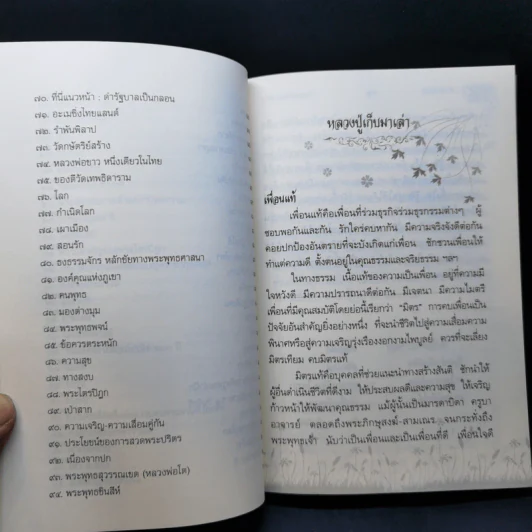 ๗๐. ที่นี่แนวหน้า : ด่ารัฐบาลเป็นกลอน
๗๑. อะเมซิ่งไทยแลนด์
๗๒. รำพันพิลาป
๗๓. วัดกษัตริย์สร้าง
๗๔. หลวงพ่อขาว หนึ่งเดียวในไทย
๗๕. ของดีวัดเทพธิดาราม
๗๖. โลก
๗๗. กำเนิดโลก
๗๘. เผาเมือง
๗๙. สอนรัก
๘๐. ธงธรรมจักร หลักชัยทางพระพุทธศาสนา
๘๑. องค์คุณแห่งภูเขา
๘๒. คนพุทธ
๘๓. มองต่างมุม
๘๔. พระพุทธพจน์
๘๕. ข้อควรตระหนัก
๘๖. ความสุข
๘๗. ทางสงบ
๘๘. พระไตรปิฎก
๘๙. เป่าสาก
๙๐. ความเจริญ-ความเสื่อมคู่กัน
๙๑. ประโยชน์ของการสวดพระปริตร
๙๒. เนื่องจากปก
๙๓. พระพุทธสุวรรณเขต (หลวงพ่อโต)
๙๔. พระพุทธชินสีห์
หลวงปู่เก็บมาเล่า
เพื่อนแท้
เพื่อนแท้คือเพื่อนที่ร่วมธุรกิจร่วมธุรกรรมต่างๆ ผู้
ชอบพอกันและกัน รักใคร่คบหากัน มีความจริงจังดีต่อกัน
คอยปกป้องอันตรายที่จะบังเกิดแก่เพื่อน ชักชวนเพื่อนให้
ทำแต่ความดี ตั้งตนอยู่ในคุณธรรมและจริยธรรม ฯลฯ
ในทางธรรม เนื้อแท้ของความเป็นเพื่อน อยู่ที่ความมี
ใจหวังดี มีความปรารถนาดีต่อกัน มีเจตนา มีความไมตรี
เพื่อนที่มีคุณสมบัติโดยย่อนี้เรียกว่า "มิตร" การคบเพื่อนเป็น
ปัจจัยอันสำคัญยิ่งอย่างหนึ่ง ที่จะนำชีวิตไปสู่ความเสื่อมความ
พินาศหรือสู่ความเจริญรุ่งเรืองงอกงามไพบูลย์ ควรที่จะเลี่ยง
มิตรเทียม คบมิตรแท้
มิตรแท้คือบุคคลที่ช่วยแนะนำทางสร้างสันติ ชักนำให้
ผู้อื่นดำเนินชีวิตที่ดีงาม ให้ประสบผลดีและความสุข ให้เจริญ
ก้าวหน้าให้พัฒนาคุณธรรม แม้ผู้นั้นเป็นมารดาบิดา ครูบา
อาจารย์ ตลอดถึงพระภิกษุสงฆ์-สามเณร จนกระทั่งถึง
พระพุทธเจ้า นับว่าเป็นเพื่อนและเป็นเพื่อนที่ดี เพื่อนใจดี